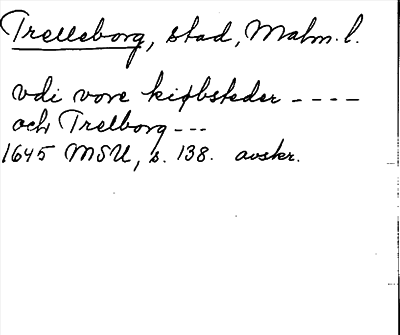 Trelleborg, stad, Malm. l.
vdi vore kiøbsteder ----
och Trelborg ---
1645 MSU, s. 138. avskr.